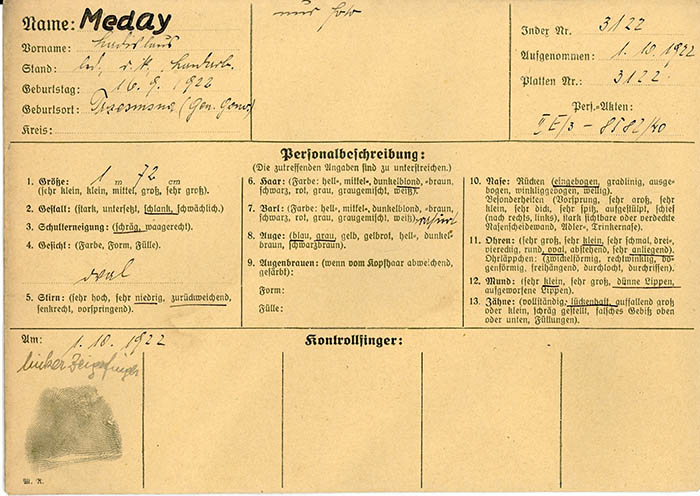 Name: Meday
nur foto
Vorname: Ladislaus
Stand: led, r. k, Landarb.
Geburtstag: 16. 9. 1922
Geburtsort: (Gen. Gouv)
Kreis:
Index Nr. 3122
Aufgenommen: 1. 10. 1922
Platten Nr.: 3122
Pers.-Akten:
II E/3 - 8582/40
Personalbeschreibung:
(Die zutreffenden Angaben sind zu unterstreichen.)
1. Größe: 1 m 72 cm
(sehr klein, klein, mittel, groß, sehr groß).
2. Gestalt: (stark, untersetzt, schlank, schwächlich.)
3. Schulterneigung: (schräg, waagerecht).
4. Gesicht: (Farbe, Form, Fülle).
oval
5. Stirn: (sehr hoch, sehr niedrig, zurückweichend,
senkrecht, vorspringend).
6. Haar: (Farbe: hell-, mittel-, dunkelblond, -braun,
schwarz, rot, grau, graugemischt, weiß).
7. Bart: (Farbe: hell-, mittel-, dunkelblond, -braun,
schwarz, rot, grau, graugemischt, weiß). rasiert
8. Auge: (blau, grau, gelb, gelbrot, hell-, dunkel-
braun, schwarzbraun).
9. Augenbrauen: (wenn vom Kopfhaar abweichend,
gefärbt):
Form:
Fülle:
10. Nase: Rücken (eingebogen, gradlinig, ausge-
bogen, winkliggebogen, wellig).
Besonderheiten (Vorsprung, sehr groß, sehr
klein, sehr dick, sehr spitz, aufgestülpt, schief
(nach rechts, links), stark sichtbare oder verdeckte
Nasenscheidewand, Adler-, Trinkernase).
11. Ohren: (sehr groß, sehr klein, sehr schmal, drei-,
viereckig, rund, oval, abstehend, sehr anliegend).
Ohrläppchen: (zwickelförmig, rechtwinklig, bo-
genförmig, freihängend, durchlocht, durchrissen).
12. Mund: (sehr klein, sehr groß, dünne Lippen,
aufgeworfene Lippen).
13. Zähne: (vollständig, lückenhaft, auffallend groß
oder klein, schräg gestellt, falsches Gebiß oben
oder unten, Füllungen).
Am: 1. 10. 1922
Kontrollfinger:
linker Zeigefinger
M. R.